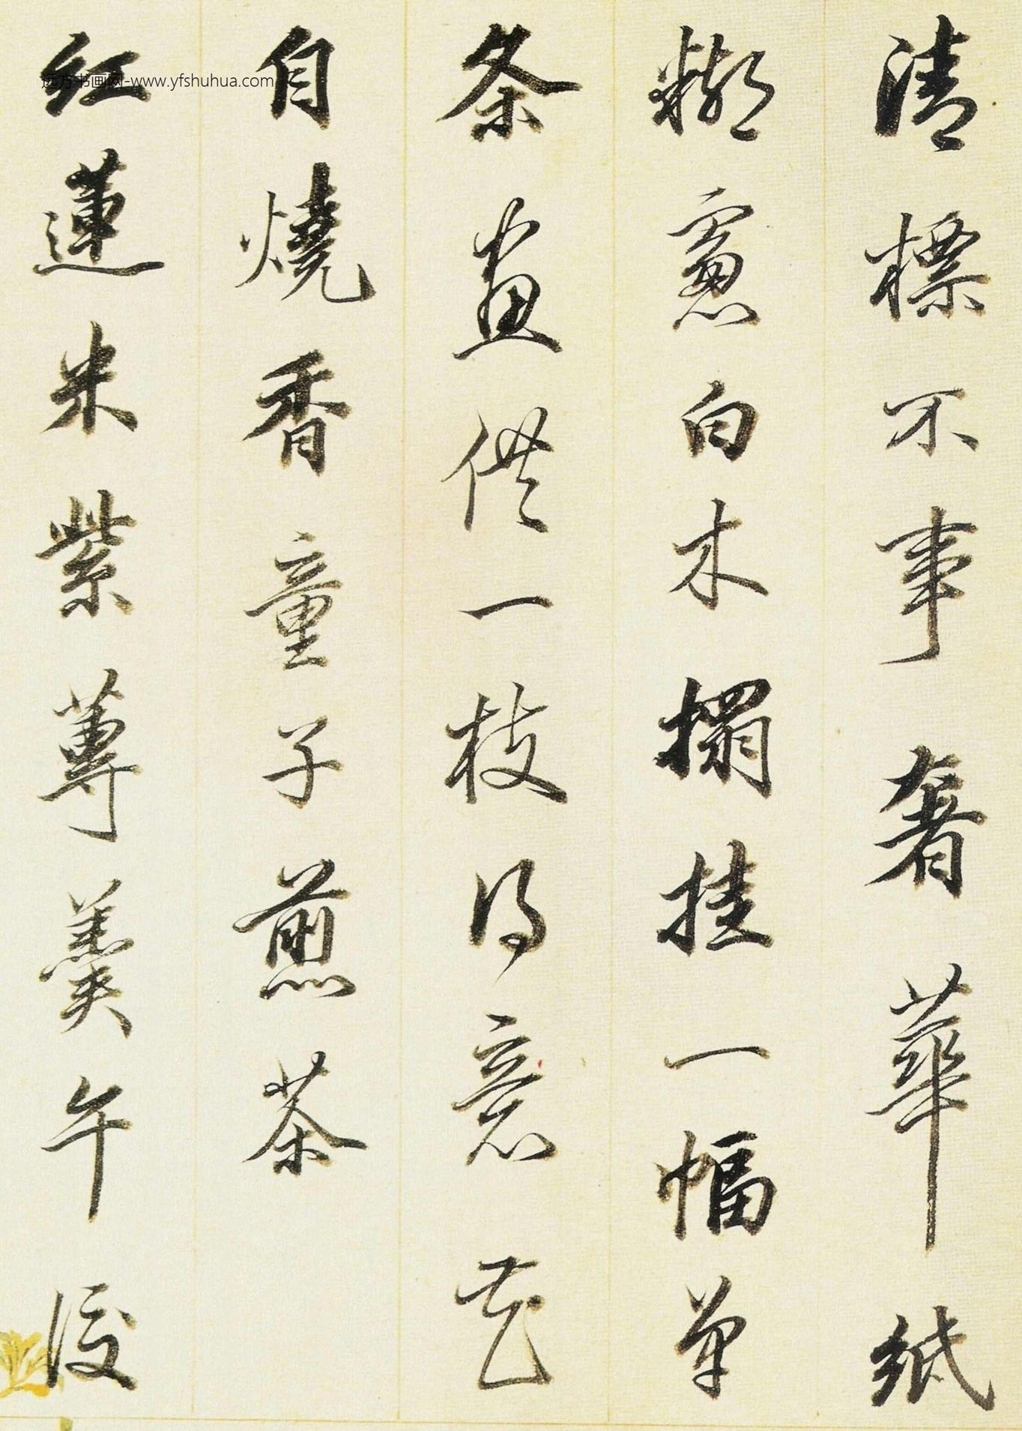 清標不事奢華紙
糊窓白木榻挂一幅單
条畫供一枝得意花
自燒香童子煎茶
紅蓮米紫蓴羹午後
远方书画网-www.yfshuhua.com